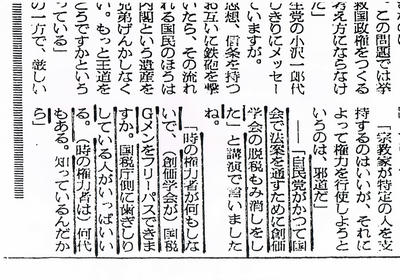 「この問題では挙
救国政権をつくる
考え方にならなけ
だ」
生党の小沢一郎代
しきりにメッセー
ていますが。
思想、信条を持つ
お互いに鉄砲を撃
いたら、その流れ
れる国民のほうは
内閣という遺産を
兄弟げんかしなく
い。もっと王道を
どうですかという
っている」
の一方で、厳しい
「宗教家が特定の人を支
持するのはいいが、それに
よって権力を行使しようと
いうのは、邪道だ」
――「自民党がかつて国
会で法案を通すために創価
学会の脱税もみ消しをし
た」と講演で言いました
ね。
「時の権力者が何もしな
いで、（創価学会が）国税
Gメンをフリーパスできま
すか。国税庁側に歯ぎしり
している人がいっぱいい
る。（時の権力者は）何代
もある。知っているんだか
ら」